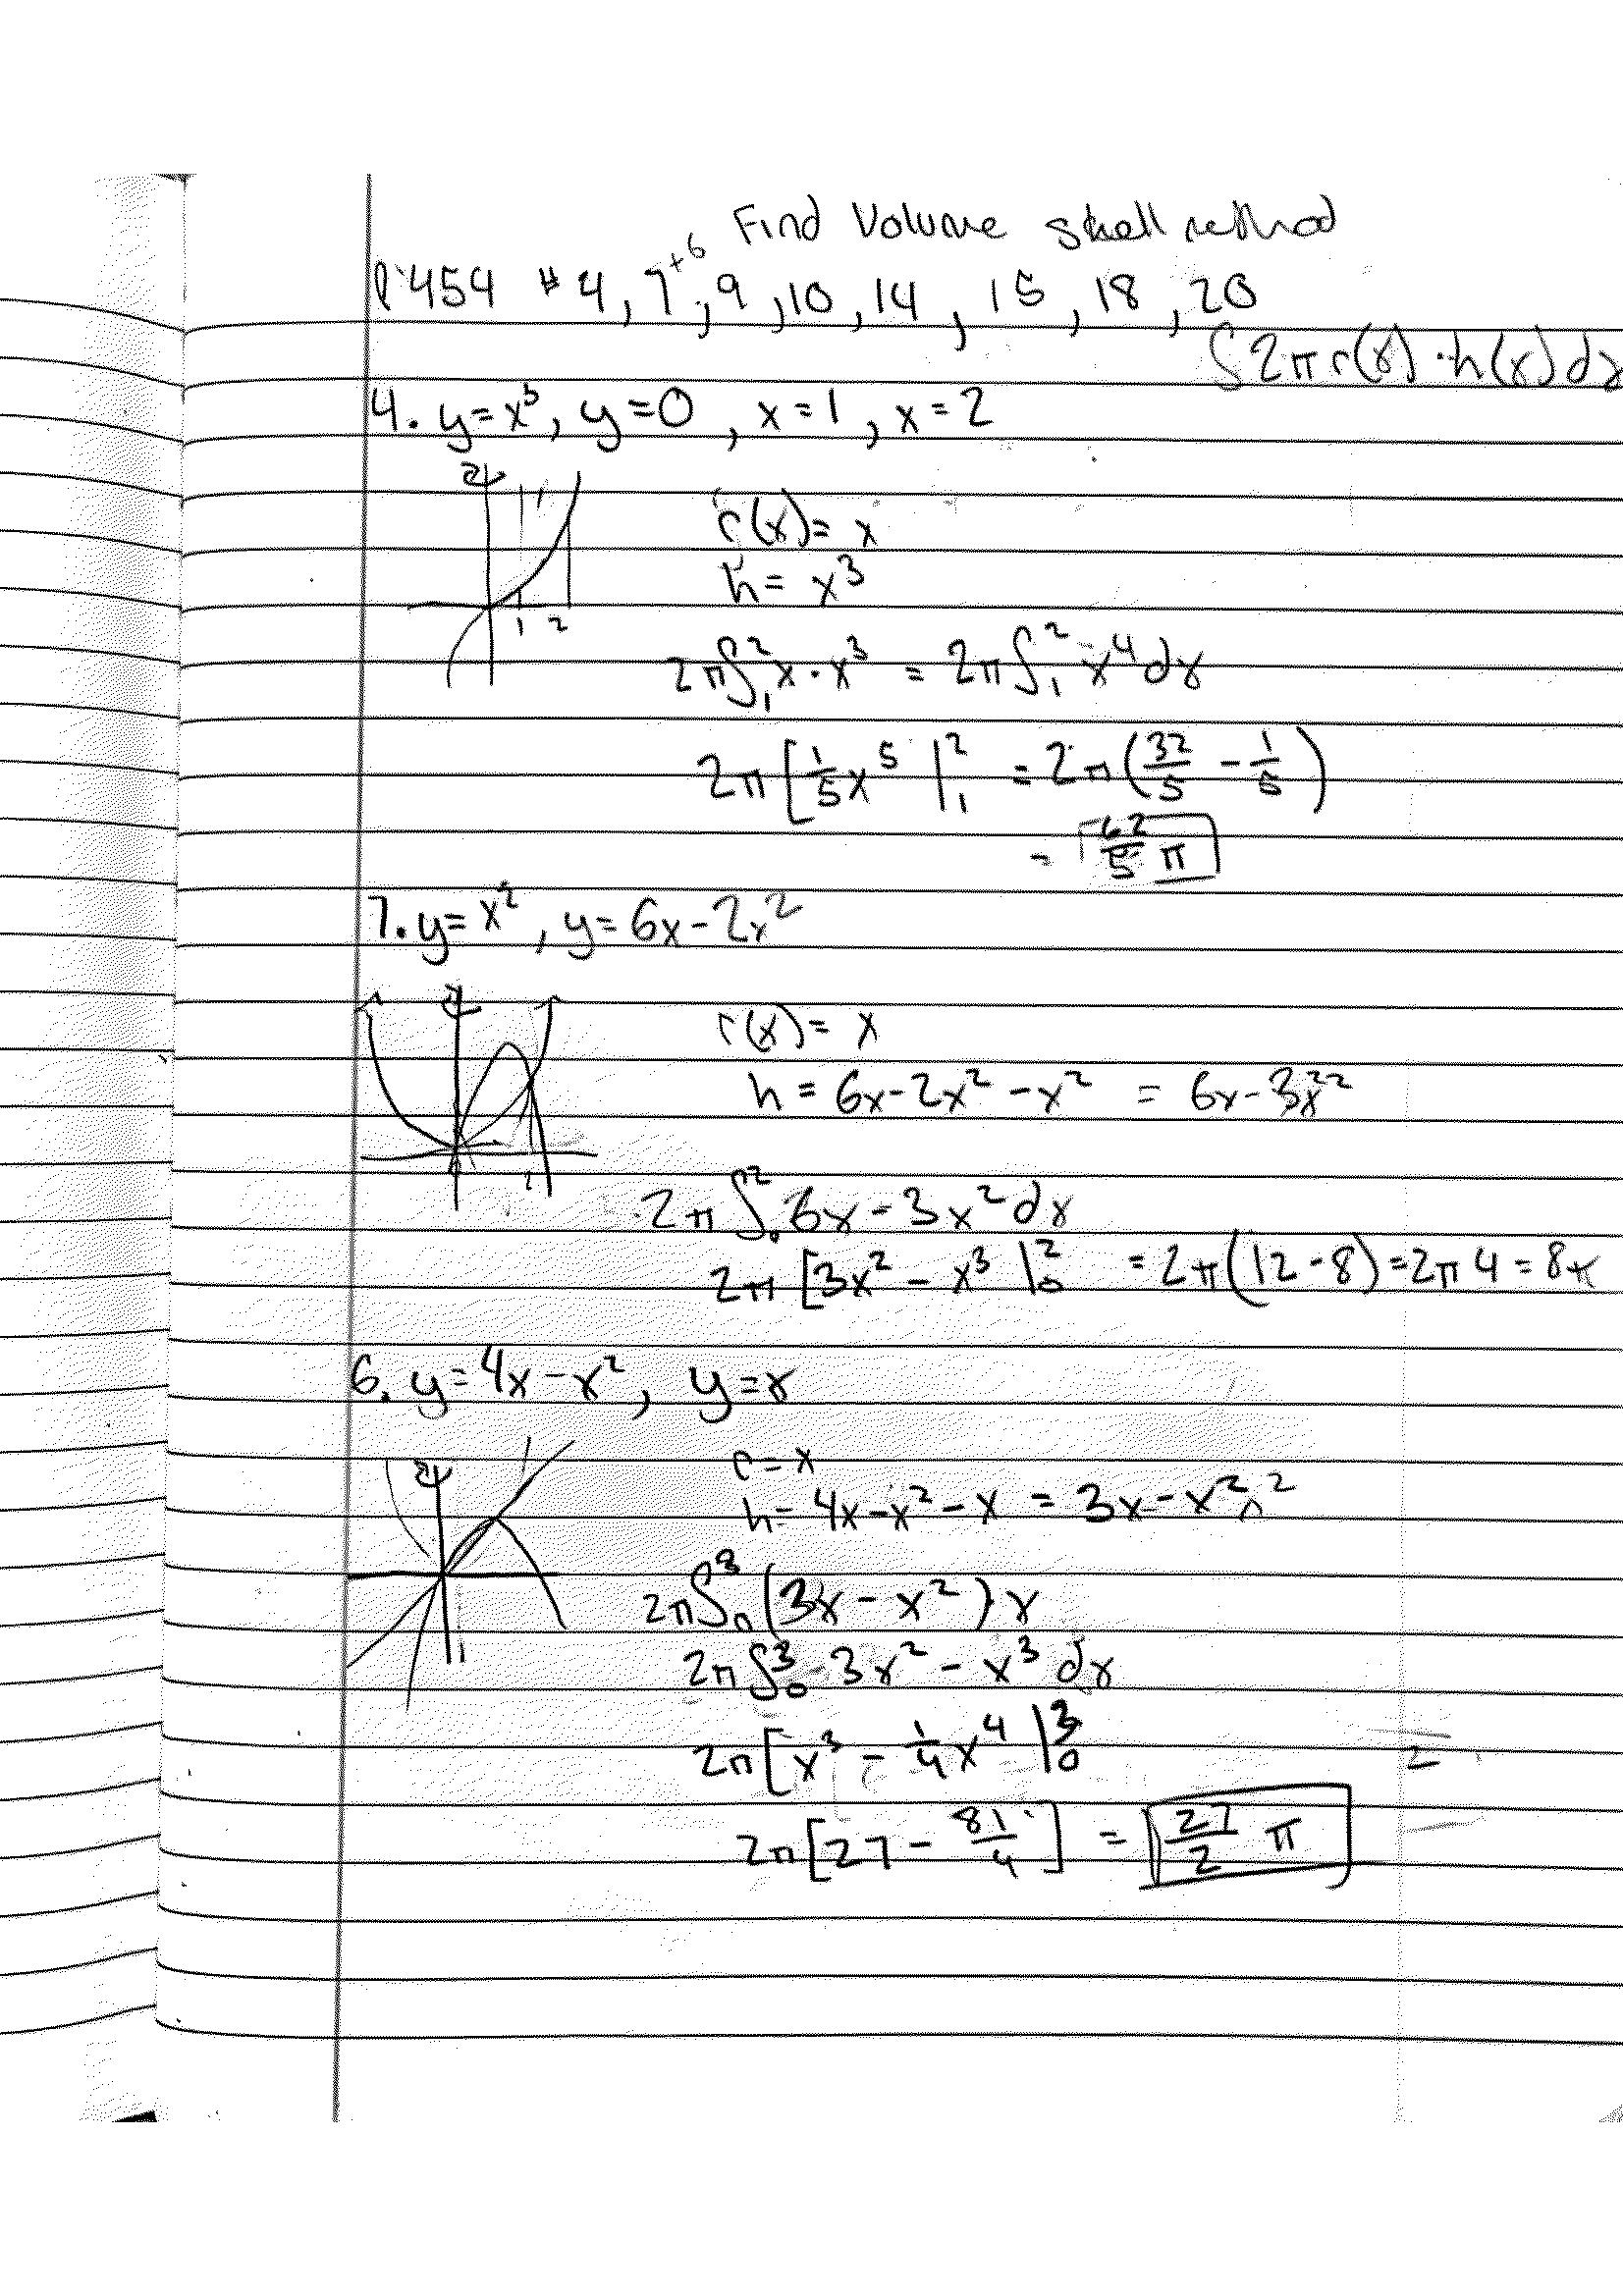 Find Volume shell method
P 454 # 4, 7 +6, 9, 10, 14, 15, 18, 20
∫ 2π r(x) · h(x) dx
4. y = x³, y = 0, x = 1, x = 2
r(x) = x
h = x³
1 2
2π ∫₁² x · x³ = 2π ∫₁² x⁴ dx
2π [ 1/5 x⁵ |₁² = 2π ( 32/5 - 1/5 )
= 62/5 π
7. y = x², y = 6x - 2x²
r(x) = x
h = 6x - 2x² - x² = 6x - 3x²
2π ∫₀² 6x - 3x² dx
2π [ 3x² - x³ |₀² = 2π (12 - 8) = 2π 4 = 8π
6. y = 4x - x², y = x
r = x
h = 4x - x² - x = 3x - x²
2π ∫₀³ (3x - x²) x
2π ∫₀³ 3x² - x³ dx
2π [ x³ - 1/4 x⁴ |₀³
2π [ 27 - 81/4 ] = 27/2 π